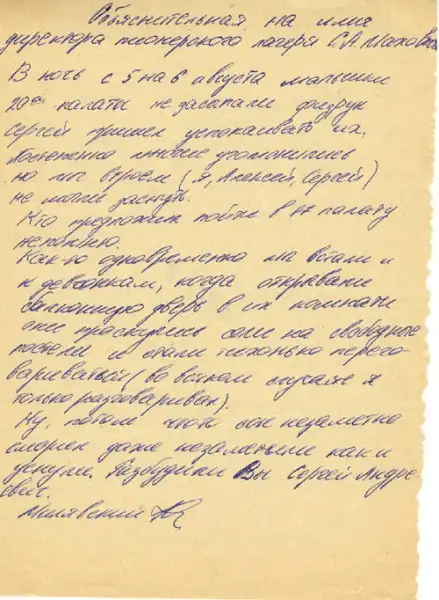 Объяснительная на имя
директора пионерского лагеря С.А. Махов
В ночь с 5 на 6 августа мальчики
палаты не засыпали физрук
Сергей пришел успокаивать их.
Постепенно многие угомонились
но мы втроем (я, Алексей, Сергей)
не могли заснуть.
Кто предложил пойти в 17 палату
не помню.
Как-то одновременно мы встали и
к девчонкам, когда открывали
балконную дверь в их комнате
они проснулись сели на свободные
постели и стали тихонько перего-
вариваться (во всяком случае я
только разговаривал).
Ну, потом что-то сон незаметно
сморил даже незаметили как и
уснули. Разбудили Вы Сергей Андре
евич.
Милявский